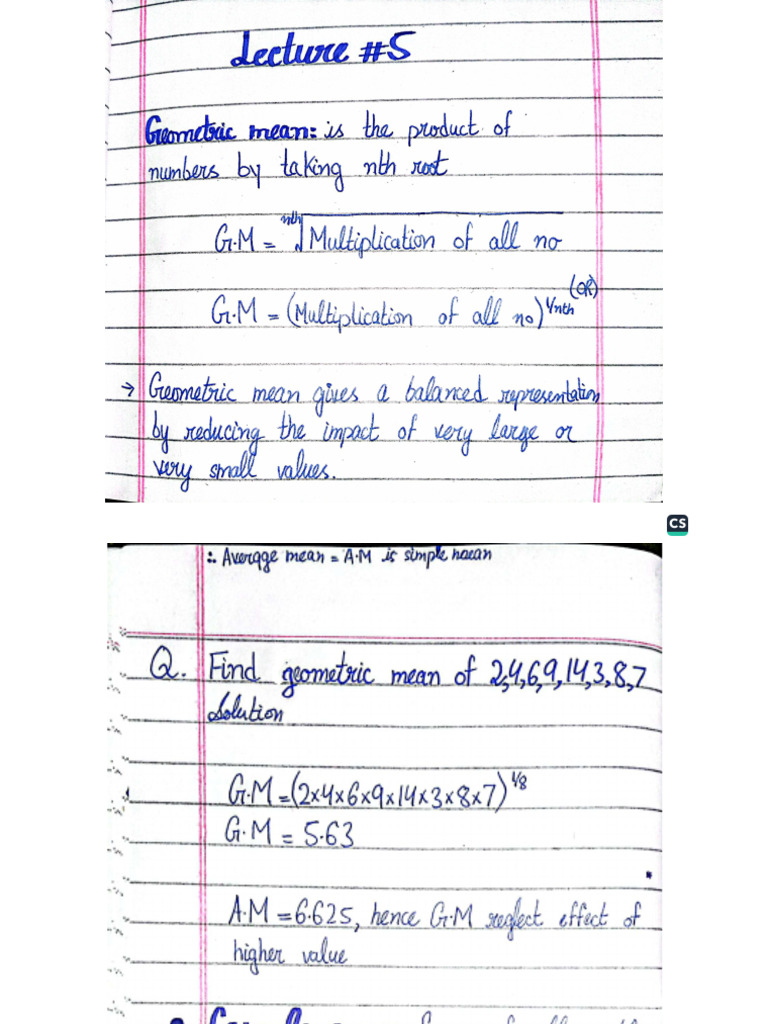 Lecture #5
Geometric mean: is the product of
numbers by taking nth root
G.M = nth√Multiplication of all no
(OR)
G.M = (Multiplication of all no)^1/nth
→ Geometric mean gives a balanced representation
by reducing the impact of very large or
very small values.
CS
∴ Average mean = A.M is simple
Q. Find geometric mean of 2,4,6,9,14,3,8,7
Solution
G.M = (2×4×6×9×14×3×8×7)^1/8
G.M = 5.63
A.M = 6.625, hence G.M neglect effect of
higher value